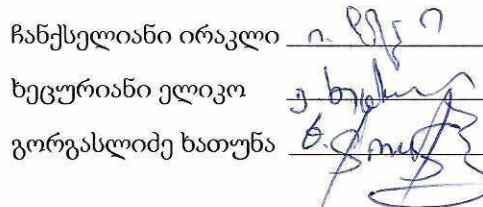 ჩანქსელიანი ირაკლი
ხეცურიანი ელიკო
გორგასლიძე ხათუნა